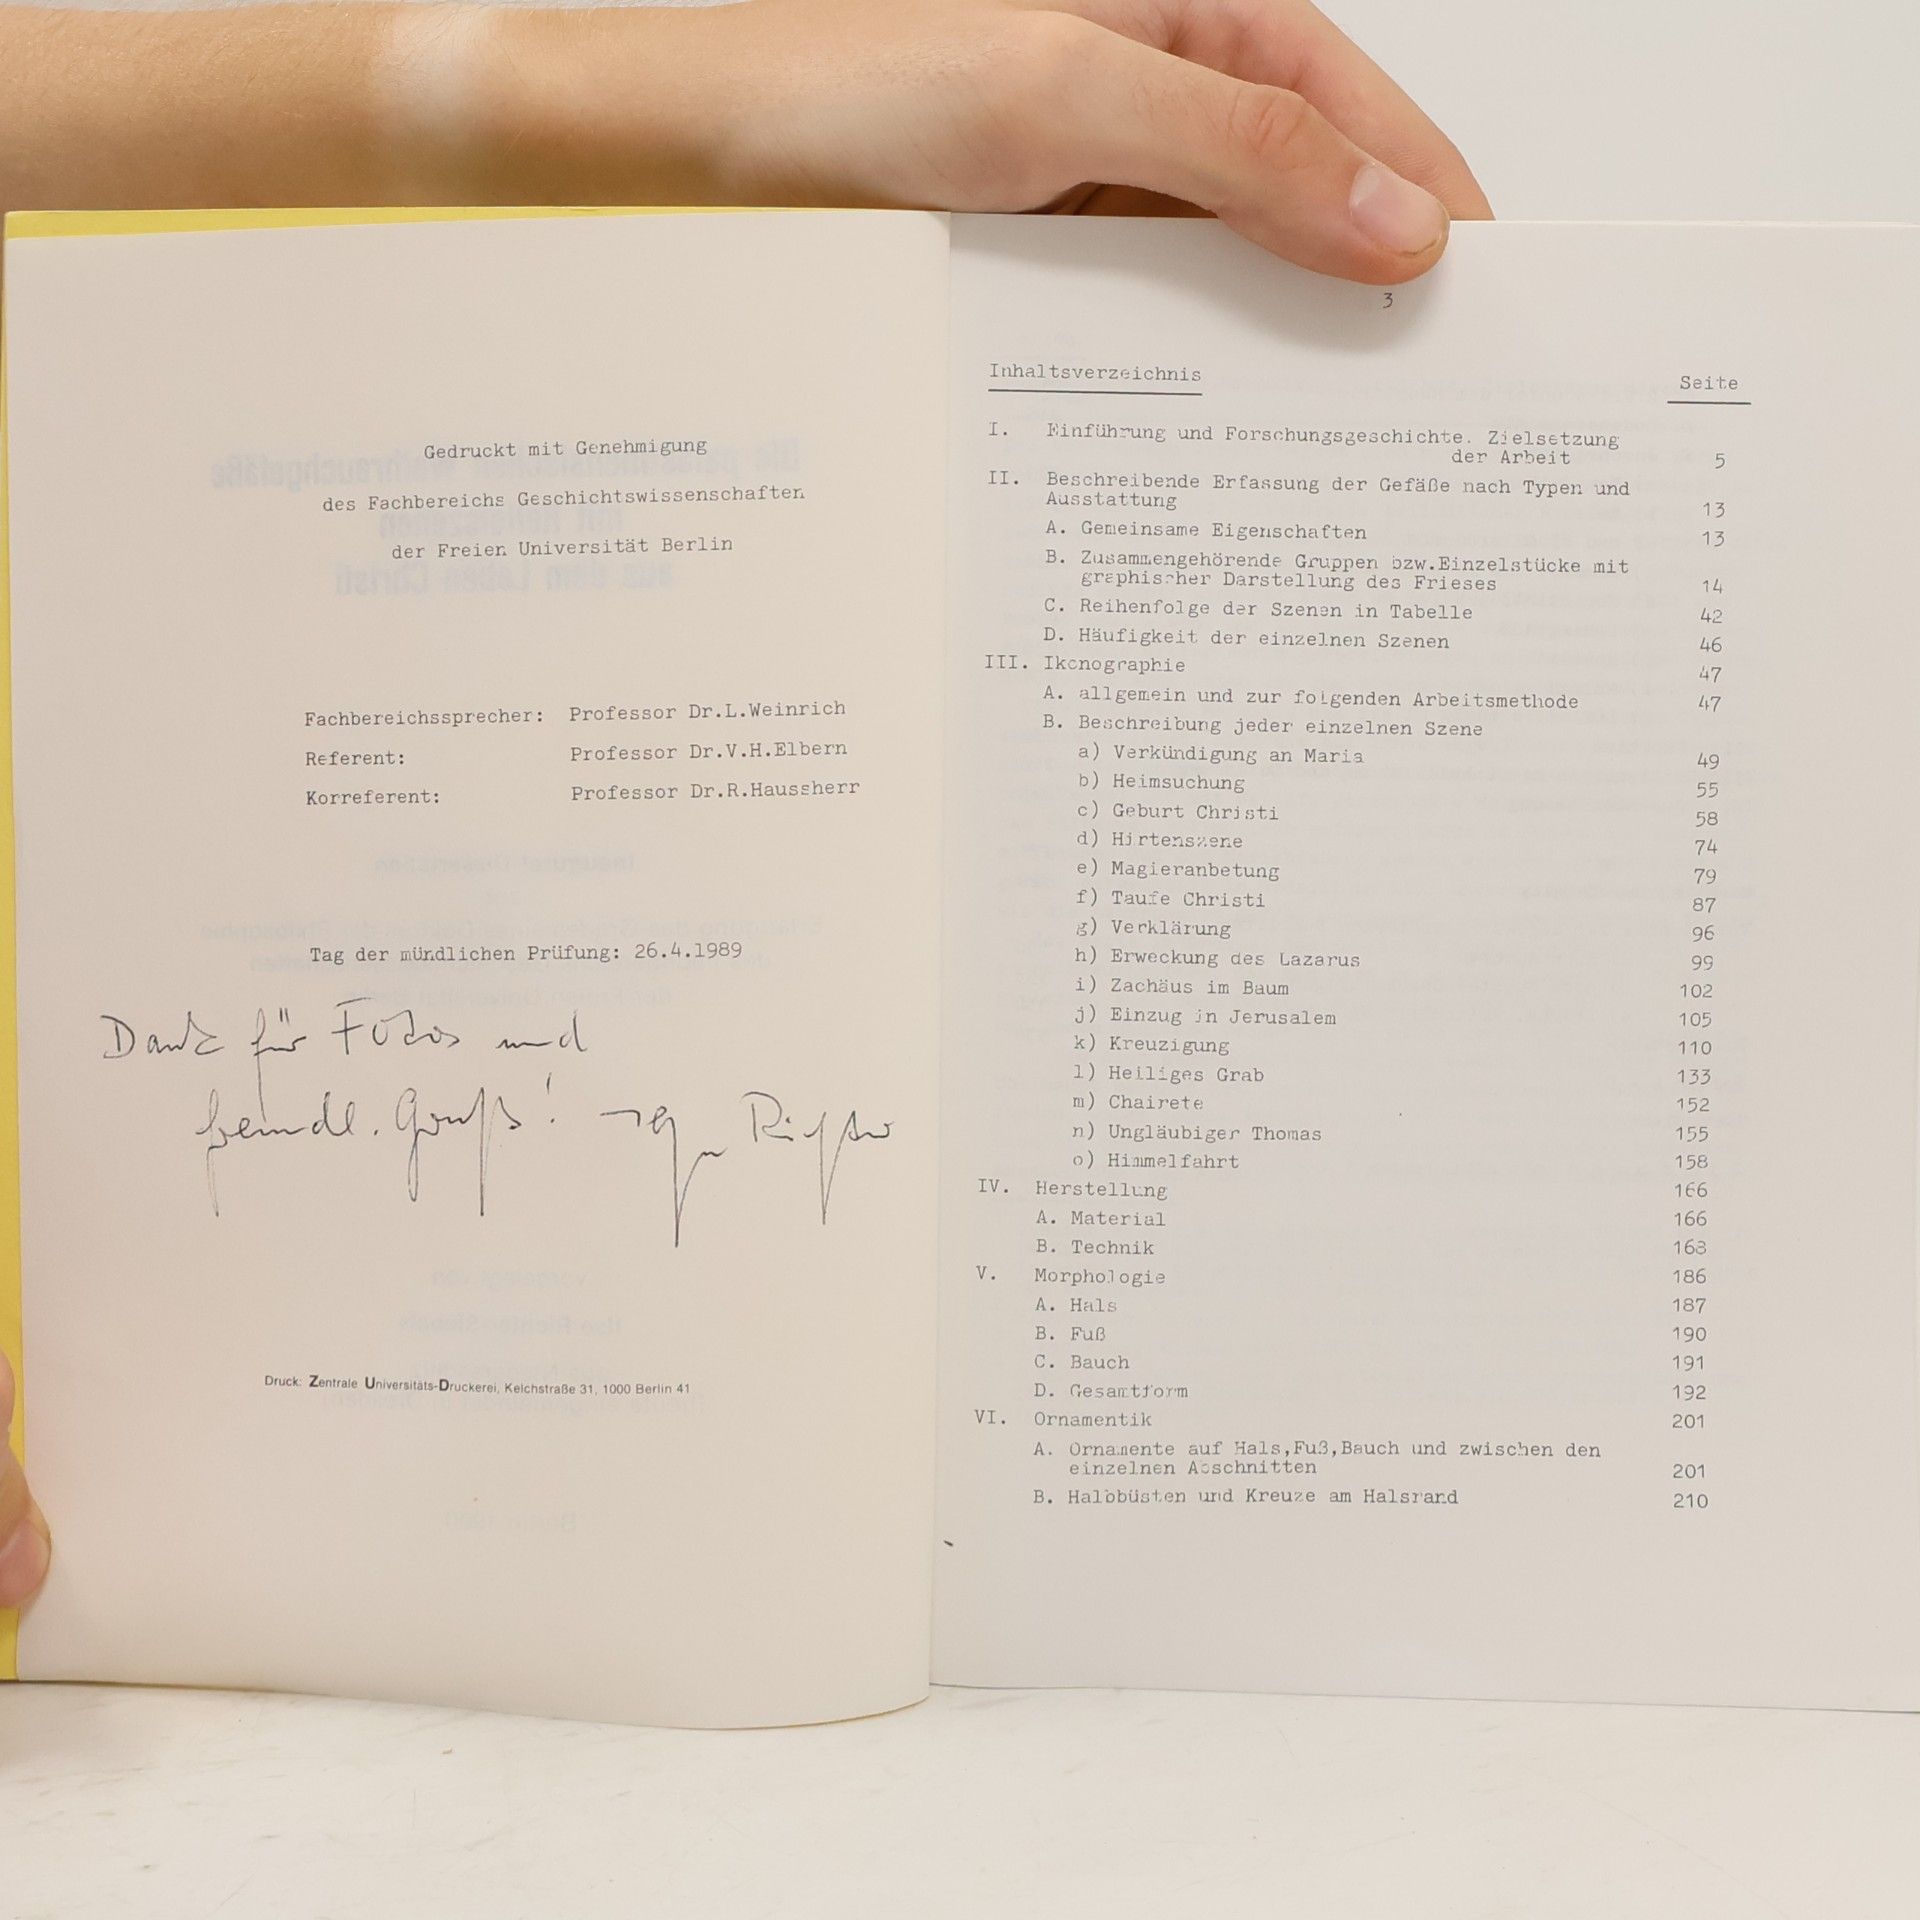 Gedruckt mit Genehmigung
des Fachbereichs Geschichtswissenschaften
der Freien Universität Berlin
Fachbereichssprecher: Professor Dr.L.Weinrich
Referent: Professor Dr.V.H.Elbern
Korreferent: Professor Dr.R.Haussherr
Tag der mündlichen Prüfung: 26.4.1989
Dank für Fotos und
freundl. Gruß! Richter
Druck: Zentrale Universitäts-Druckerei, Kelchstraße 31, 1000 Berlin 41
3
Inhaltsverzeichnis Seite
I. Einführung und Forschungsgeschichte. Zielsetzung
der Arbeit 5
II. Beschreibende Erfassung der Gefäße nach Typen und
Ausstattung 13
A. Gemeinsame Eigenschaften 13
B. Zusammengehörende Gruppen bzw.Einzelstücke mit
graphischer Darstellung des Frieses 14
C. Reihenfolge der Szenen in Tabelle 42
D. Häufigkeit der einzelnen Szenen 46
III. Ikonographie 47
A. allgemein und zur folgenden Arbeitsmethode 47
B. Beschreibung jeder einzelnen Szene
a) Verkündigung an Maria 49
b) Heimsuchung 55
c) Geburt Christi 58
d) Hirtenszene 74
e) Magieranbetung 79
f) Taufe Christi 87
g) Verklärung 96
h) Erweckung des Lazarus 99
i) Zachäus im Baum 102
j) Einzug in Jerusalem 105
k) Kreuzigung 110
l) Heiliges Grab 133
m) Chairete 152
n) Ungläubiger Thomas 155
o) Himmelfahrt 158
IV. Herstellung 166
A. Material 166
B. Technik 168
V. Morphologie 186
A. Hals 187
B. Fuß 190
C. Bauch 191
D. Gesamtform 192
VI. Ornamentik 201
A. Ornamente auf Hals,Fuß,Bauch und zwischen den
einzelnen Abschnitten 201
B. Halbbüsten und Kreuze am Halsrand 210